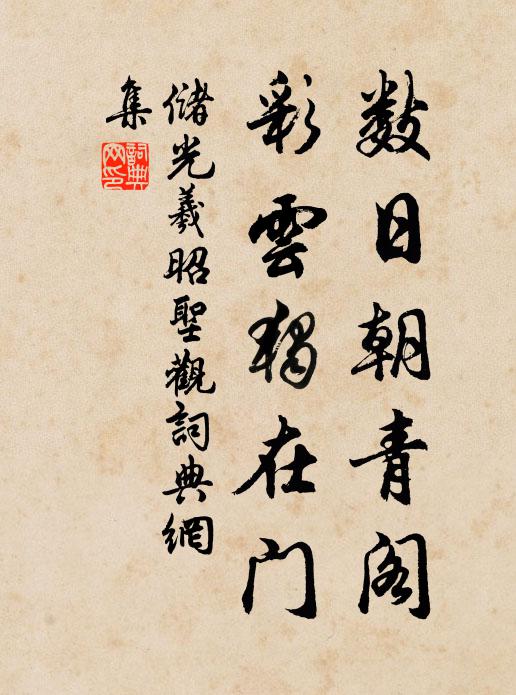 数日朝青阁
彩雲獨在门
儲光羲昭聖觀詞典網
集
詞典
网印